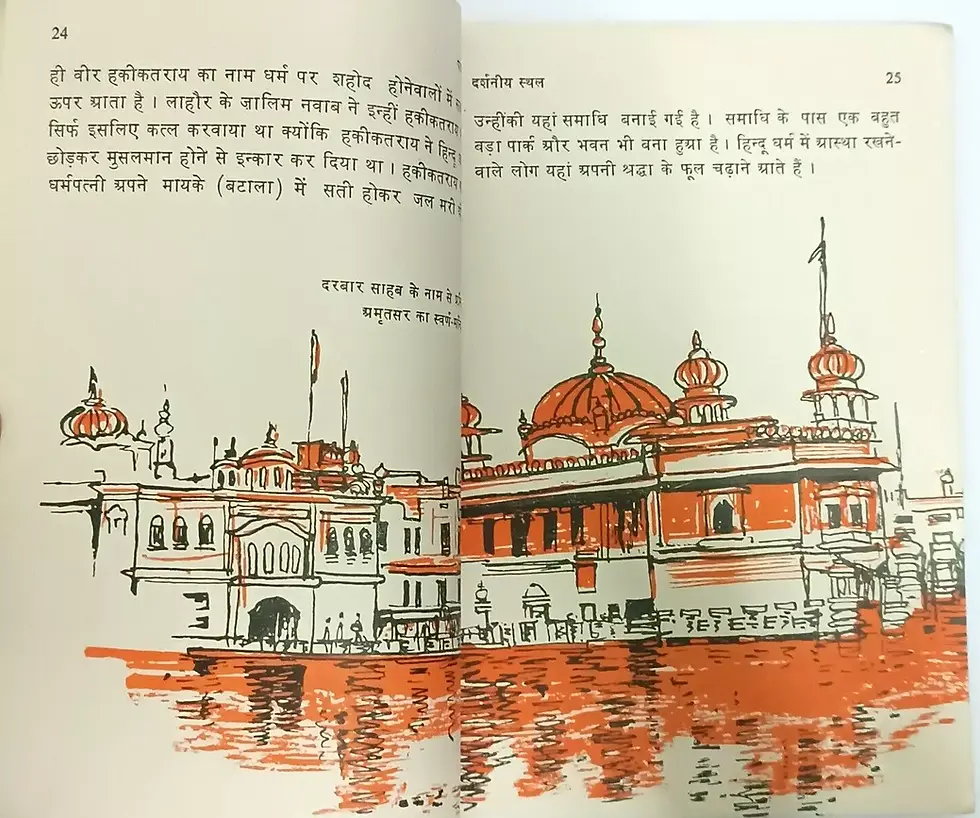 24
ही वीर हकीकतराय का नाम धर्म पर शहीद होनेवालों में
ऊपर आता है । लाहौर के ज़ालिम नवाब ने इन्हीं हकीकतराय
सिर्फ इसलिए कत्ल करवाया था क्योंकि हकीकतराय ने हिन्दू
छोड़कर मुसलमान होने से इन्कार कर दिया था । हकीकतराय
धर्मपत्नी अपने मायके (बटाला) में सती होकर जल मरी
दरबार साहब के नाम से
अमृतसर का
दर्शनीय स्थल
25
उन्हींकी यहां समाधि बनाई गई है । समाधि के पास एक बहुत
बड़ा पार्क और भवन भी बना हुआ है । हिन्दू धर्म में आस्था रखने-
वाले लोग यहां अपनी श्रद्धा के फूल चढ़ाने आते हैं ।